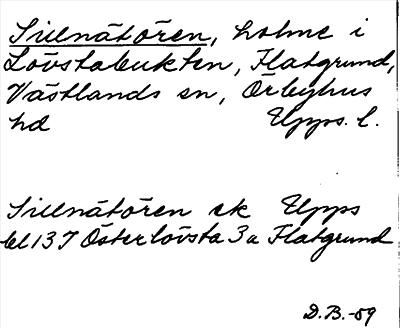 Sillnätören, holme i
Lövstabukten, Flatgrund,
Västlands sn, Örbyhus
hd Upps. l.
Sillnätören ek Upps
bl 137 Österlövsta 3a Flatgrund
D.B.-59